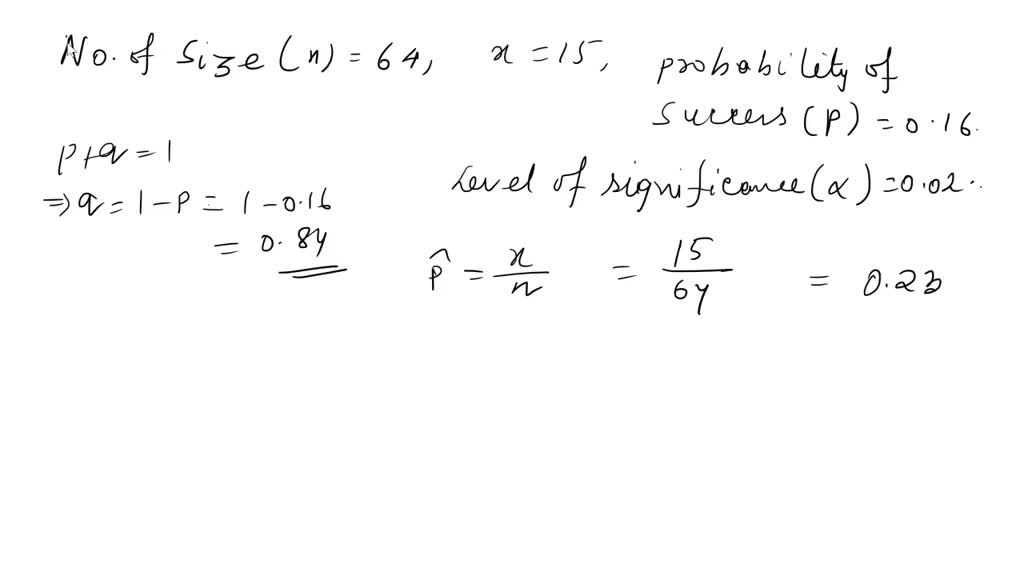 No. of Size (n) = 64, x = 15, probability of
Success (p) = 0.16.
p+q = 1
⇒ q = 1 - p = 1 - 0.16
= 0.84
Level of significance (α) = 0.02..
p̂ = x/n = 15/64 = 0.23